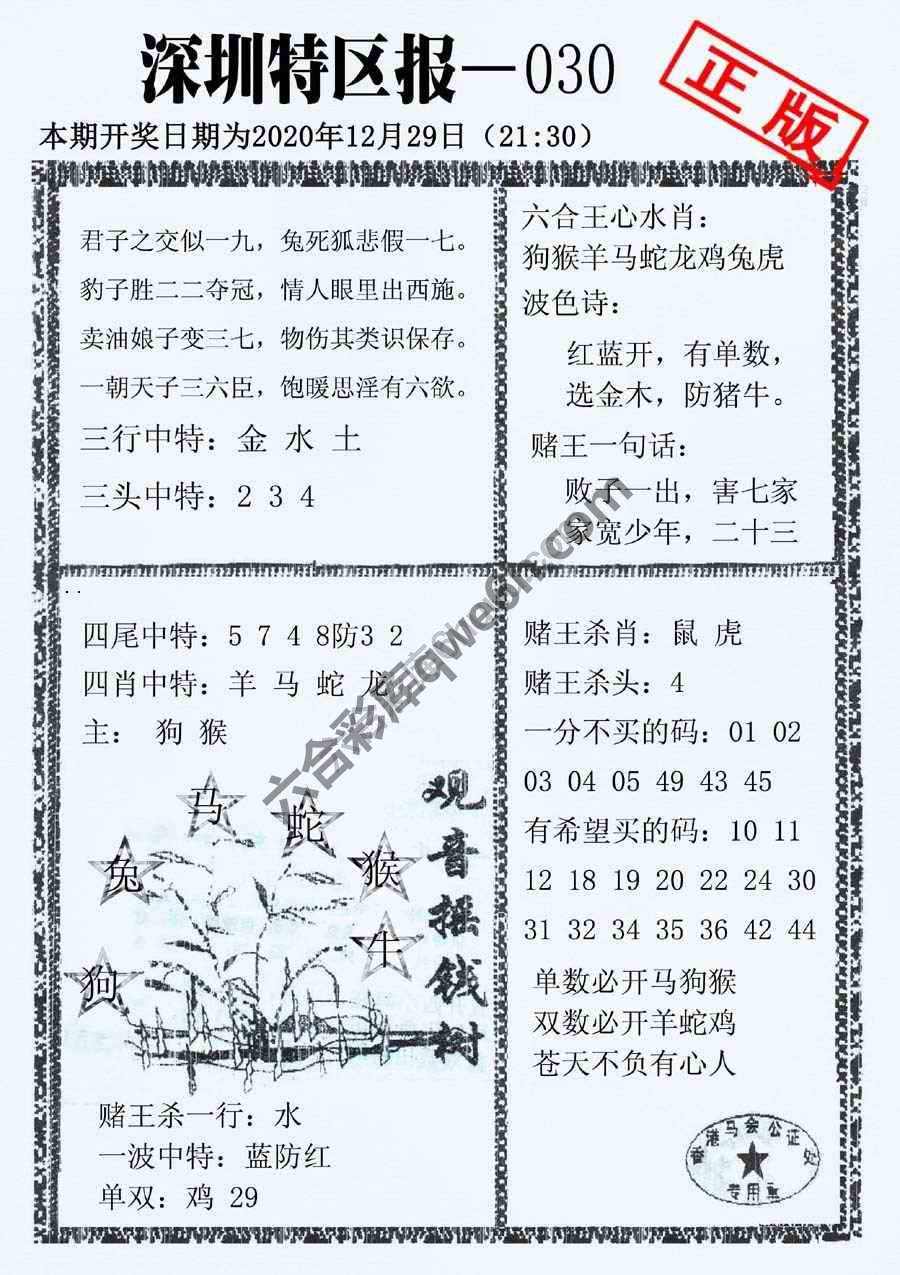 深圳特区报—030
正版
本期开奖日期为2020年12月29日（21:30）
君子之交似一九，兔死狐悲假一七。
豹子胜二二夺冠，情人眼里出西施。
卖油娘子变三七，物伤其类识保存。
一朝天子三六臣，饱暖思淫有六欲。
三行中特：金 水 土
三头中特：2 3 4
六合王心水肖：
狗猴羊马蛇龙鸡兔虎
波色诗：
红蓝开，有单数，
选金木，防猪牛。
赌王一句话：
败子一出，害七家
家宽少年，二十三
四尾中特：5 7 4 8防3 2
四肖中特：羊 马 蛇 龙
主： 狗 猴
马
蛇
兔
猴
牛
狗
观音摇钱树
赌王杀一行：水
一波中特：蓝防红
单双：鸡 29
赌王杀肖：鼠 虎
赌王杀头：4
一分不买的码：01 02
03 04 05 49 43 45
有希望买的码：10 11
12 18 19 20 22 24 30
31 32 34 35 36 42 44
单数必开马狗猴
双数必开羊蛇鸡
苍天不负有心人
香港马会公证处
专用章
六合彩库qwe6h.com